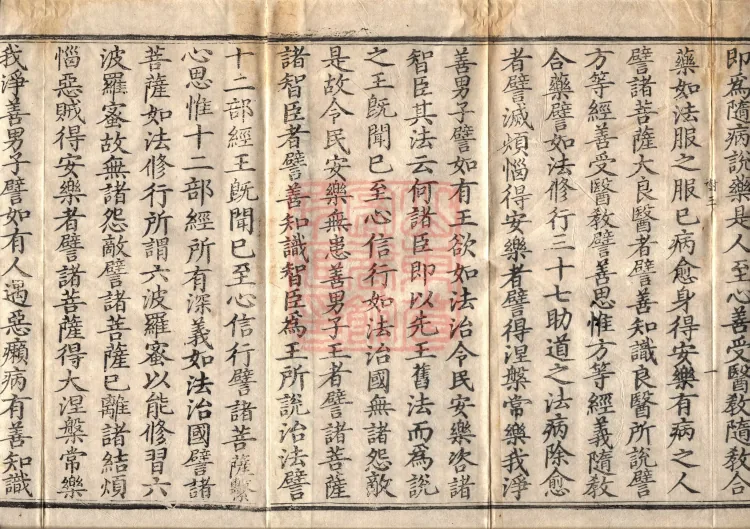 即爲隨病說藥是人至心善受醫教隨教合
藥如法服之服已病愈身得安樂有病之人
譬諸菩薩大良醫者譬善知識良醫所說譬
方等經善受醫教譬善思惟方等經義隨教
合藥譬如法修行三十七助道之法病除愈
者譬滅煩惱得安樂者譬得涅槃常樂我淨
善男子譬如有王欲如法治令民安樂咨諸
智臣其法云何諸臣即以先王舊法而爲說
之王既聞已至心信行如法治國無諸怨敵
是故令民安樂無患善男子王者譬諸菩薩
諸智臣者譬善知識智臣爲王所說治法譬
十二部經王既聞已至心信行譬諸菩薩繫
心思惟十二部經所有深義如法治國譬諸
菩薩如法修行所謂六波羅蜜以能修習六
波羅蜜故無諸怨敵譬諸菩薩已離諸結煩
惱惡賊得安樂者譬諸菩薩得大涅槃常樂
我淨善男子譬如有人遇惡癩病有善知識